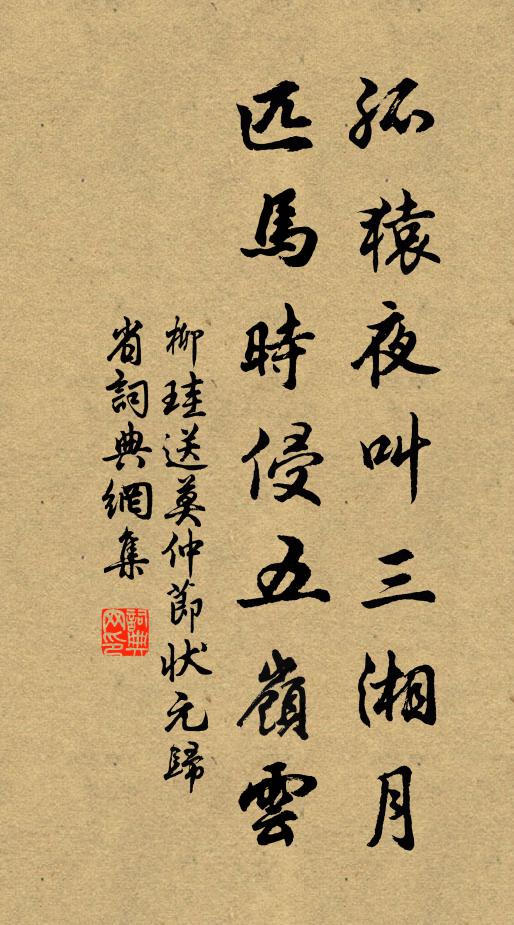 孤猿夜叫三湘月
匹馬時侵五嶺雲
柳珪送莫仲節狀元歸
省詞典網集
詞典
网印